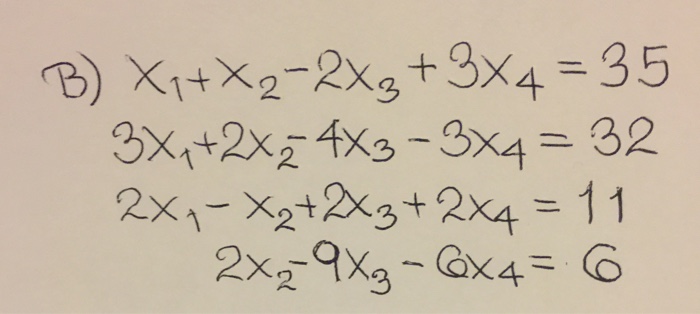 B) x₁+x₂-2x₃+3x₄=35
3x₁+2x₂-4x₃-3x₄=32
2x₁-x₂+2x₃+2x₄=11
2x₂-9x₃-6x₄=6